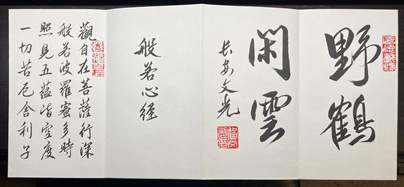 野鶴
閑雲
长安文光
般若心经
觀自在菩薩行深
般若波羅蜜多時
照見五蘊皆空度
一切苦厄舍利子